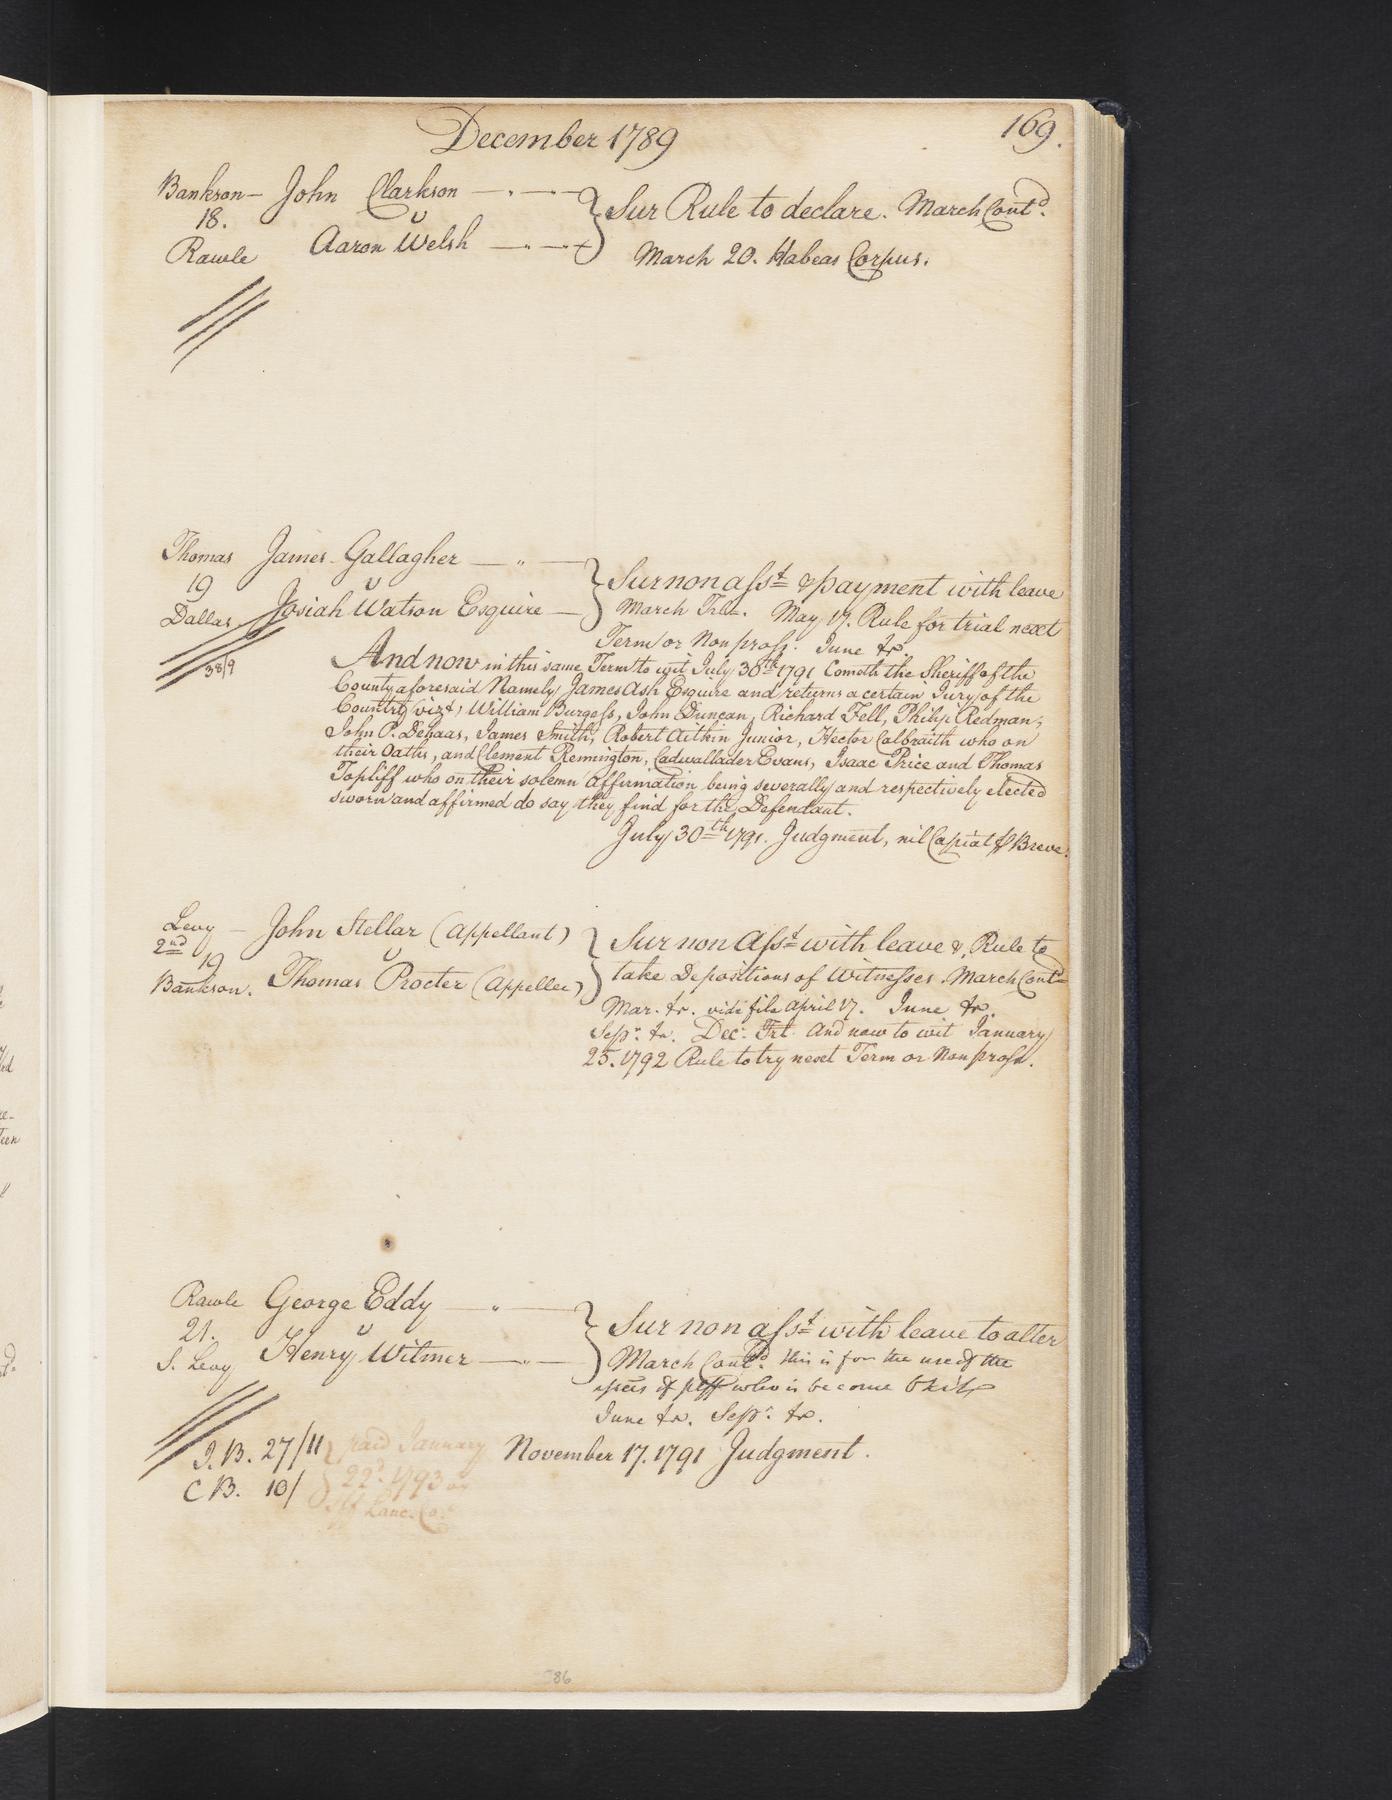 December 1789
169.
Bankson — John Clarkson
18. v
Rawle Aaron Welsh
Sur Rule to declare. March Contd.
March 20. Habeas Corpus.
Thomas James Gallagher
19 v
Dallas Josiah Watson Esquire
38/9
Sur non asst & payment with leave
March Trl. May 17. Rule for trial next
Term or Non pross. June tr.
And now in this same Term to wit July 30th 1791 Cometh the Sheriff of the
County aforesaid Namely James Ash Esquire and returns a certain Jury of the
Country (vizt) William Burgess, John Duncan, Richard Fell, Philip Redman,
John P. Dehaas, James Smith, Robert Aitkin Junior, Hector Calbraith who on
their Oaths, and Clement Remington, Cadwallader Evans, Isaac Price and Thomas
Topliff who on their solemn affirmation being severally and respectively elected
sworn and affirmed do say they find for the Defendant.
July 30th 1791. Judgment, nil Capiat Breve.
Levy — John Stellar (Appellant)
2nd 19 v
Bankson. Thomas Procter (Appellee)
Sur non Asst with leave & Rule to
take Depositions of Witnesses. March Contd
Mar. tr. vide file April 17. June tr.
Sepr. tr. Decr. Trl. And now to wit January
25. 1792 Rule to try next Term or Non pross.
Rawle George Eddy
21. v
S. Levy Henry Witmer
Sur non asst with leave to alter
March Contd. this is for the use of the
of plff who is become
June tr. Sepr. tr.
November 17. 1791 Judgment.
J.B. 27/11
C B. 10/
paid January
22d. 1793
Lanc. Co.
86